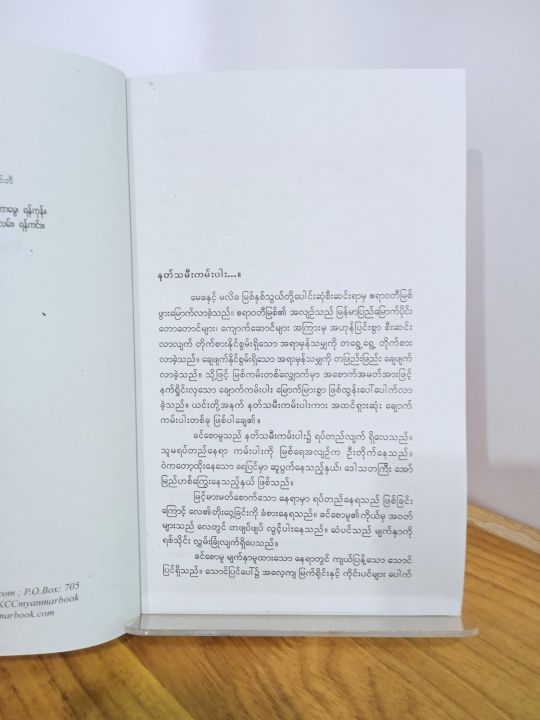 ရန်ကုန်။
လမ်း၊ ရန်ကင်း။
com ; P.O.Box: 705
KCCmyanmarbook
marbook.com
နတ်သမီးကမ်းပါး...။
မေခနှင့် မလိခ မြစ်နှစ်သွယ်တို့ပေါင်းဆုံစီးဆင်းရာမှ ဧရာဝတီမြစ်
ဖွားမြောက်လာခဲ့သည်။ ဧရာဝတီမြစ်၏ အလျဉ်သည် မြန်မာပြည်မြောက်ပိုင်း
တောတောင်များ၊ ကျောက်ဆောင်များ အကြားမှ အဟုန်ပြင်းစွာ စီးဆင်း
လာလျက် တိုက်စားနိုင်စွမ်းရှိသော အရာမှန်သမျှကို တရွေ့ရွေ့ တိုက်စား
လာခဲ့သည်။ ချေဖျက်နိုင်စွမ်းရှိသော အရာမှန်သမျှကို တဖြည်းဖြည်း ချေဖျက်
လာခဲ့သည်။ သို့ဖြင့် မြစ်ကမ်းတစ်လျှောက်မှာ အစောက်အမတ်အားဖြင့်
နက်ရှိုင်းလှသော ချောက်ကမ်းပါး မြောက်မြားစွာ ဖြစ်ထွန်းပေါ်ပေါက်လာ
ခဲ့သည်။ ယင်းတို့အနက် နတ်သမီးကမ်းပါးကား အထင်ရှားဆုံး ချောက်
ကမ်းပါးတစ်ခု ဖြစ်ပါချေ၏။
ခင်စောမူသည် နတ်သမီးကမ်းပါး၌ ရပ်တည်လျက် ရှိလေသည်။
သူမရပ်တည်နေရာ ကမ်းပါးကို မြစ်ရေအလျဉ်က ဦးတိုက်နေသည်။
ဝဲကတော့ထိုးနေသော ရေပြင်မှာ ဆူပွက်နေသည့်နှယ်၊ ဒေါသတကြီး အော်
မြည်ဟစ်ကြွေးနေသည့်နှယ် ဖြစ်သည်။
မြင့်မားမတ်စောက်သော နေရာမှာ ရပ်တည်နေရသည် ဖြစ်ခြင်း
ကြောင့် လေ၏တိုးဝှေ့ခြင်းကို ခံစားနေရသည်။ ခင်စောမူ၏ကိုယ်မှ အဝတ်
များသည် လေတွင် တဖျပ်ဖျပ် လွင့်ပါးနေသည်။ ဆံပင်သည် မျက်နှာကို
ရစ်သိုင်း လွှမ်းခြုံလျက်ရှိပေသည်။
ခင်စောမူ မျက်နှာမူထားသော နေရာတွင် ကျယ်ပြန့်သော သောင်
ပြင်ရှိသည်။ သောင်ပြင်ပေါ်၌ အလေ့ကျ မြက်ရိုင်းနှင့် ကိုင်းပင်များ ပေါက်